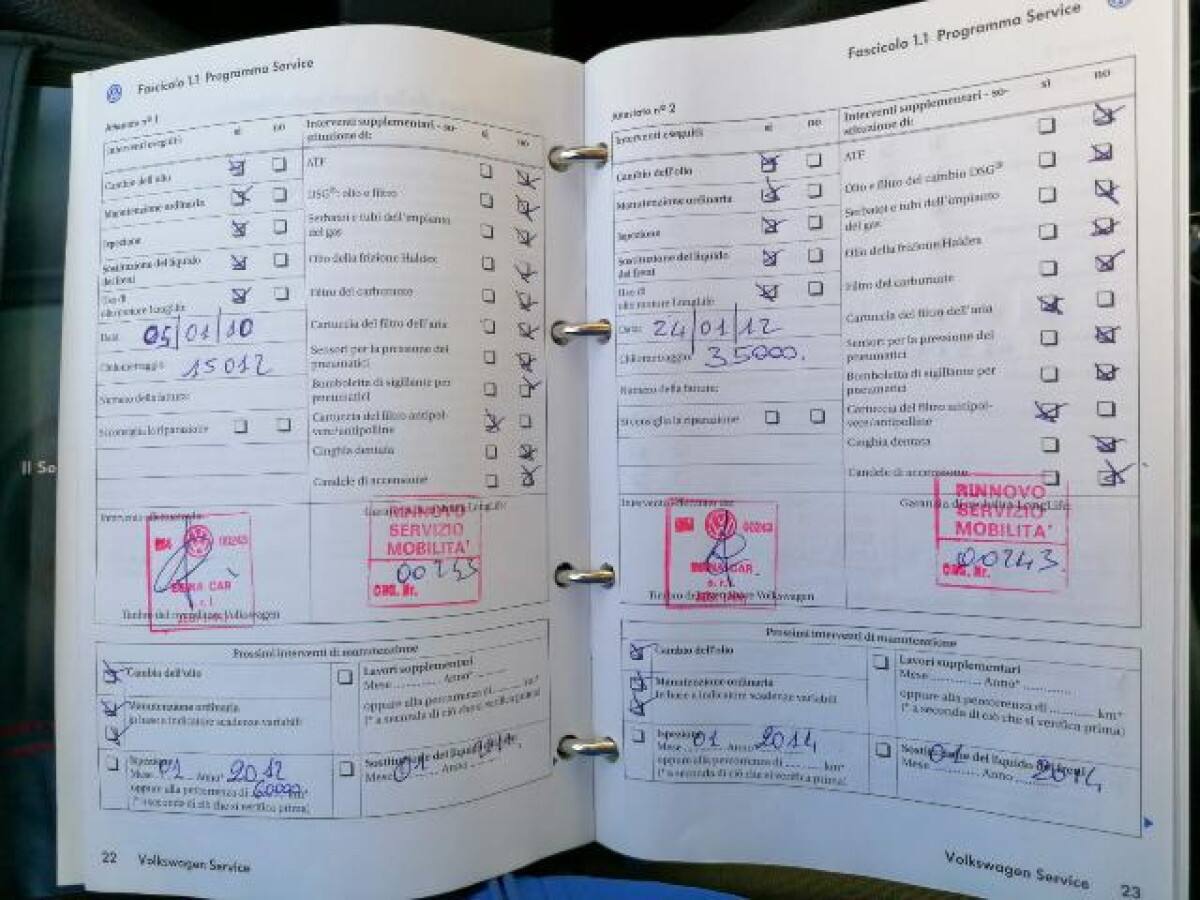 Fascicolo 1.1 Programma Service
Attestato nº 1
Interventi eseguiti
sì
no
Interventi supplementari - so-
stituzione di:
sì
no
Cambio dell'olio
Manutenzione ordinaria
Ispezione
Sostituzione del liquido
dei freni
Uso di
olio motore LongLife
Data
05 01 10
Chilometraggio
15012
Numero della fattura:
Si consiglia la riparazione
ATF
DSG®: olio e filtro
Serbatoi e tubi dell'impianto
del gas
Olio della frizione Haldex
Filtro del carburante
Cartuccia del filtro dell'aria
Sensori per la pressione dei
pneumatici
Bomboletta di sigillante per
pneumatici
Cartuccia del filtro antipol-
vere/antipolline
Cinghia dentata
Candele di accensione
00243
CAR
s. r. l
Timbro del
Volkswagen
RINNOVO
SERVIZIO
MOBILITA'
ORG. Nr.
Prossimi interventi di manutenzione
Cambio dell'olio
Manutenzione ordinaria
in base a indicatore scadenze variabili
Ispezione
Mese 01 Anno 2012
oppure alla percorrenza di 60000 km*
(* a seconda di ciò che si verifica prima)
Lavori supplementari
Mese ........... Anno* ...........
oppure alla percorrenza di ........... km*
(* a seconda di ciò che si verifica prima)
Sostituzione del liquido
Mese 01 Anno
22 Volkswagen Service
Fascicolo 1.1 Programma Service
Attestato nº 2
Interventi eseguiti
sì
no
Interventi supplementari - so-
stituzione di:
sì
no
Cambio dell'olio
Manutenzione ordinaria
Ispezione
Sostituzione del liquido
dei freni
Uso di
olio motore LongLife
Data
24 01 12
Chilometraggio
35000.
Numero della fattura:
Si consiglia la riparazione
ATF
Olio e filtro del cambio DSG®
Serbatoi e tubi dell'impianto
del gas
Olio della frizione Haldex
Filtro del carburante
Cartuccia del filtro dell'aria
Sensori per la pressione dei
pneumatici
Bomboletta di sigillante per
pneumatici
Cartuccia del filtro antipol-
vere/antipolline
Cinghia dentata
Candele di accensione
00243
CAR
s. r. l.
Timbro del
Volkswagen
RINNOVO
SERVIZIO
MOBILITA'
00243
ORG. Nr.
Prossimi interventi di manutenzione
Cambio dell'olio
Manutenzione ordinaria
in base a indicatore scadenze variabili
Ispezione
Mese 01 Anno 2014
oppure alla percorrenza di ........... km*
(* a seconda di ciò che si verifica prima)
Lavori supplementari
Mese ........... Anno* ...........
oppure alla percorrenza di ........... km*
(* a seconda di ciò che si verifica prima)
Sostituzione del liquido dei freni
Mese 01 Anno 2014
Volkswagen Service 23